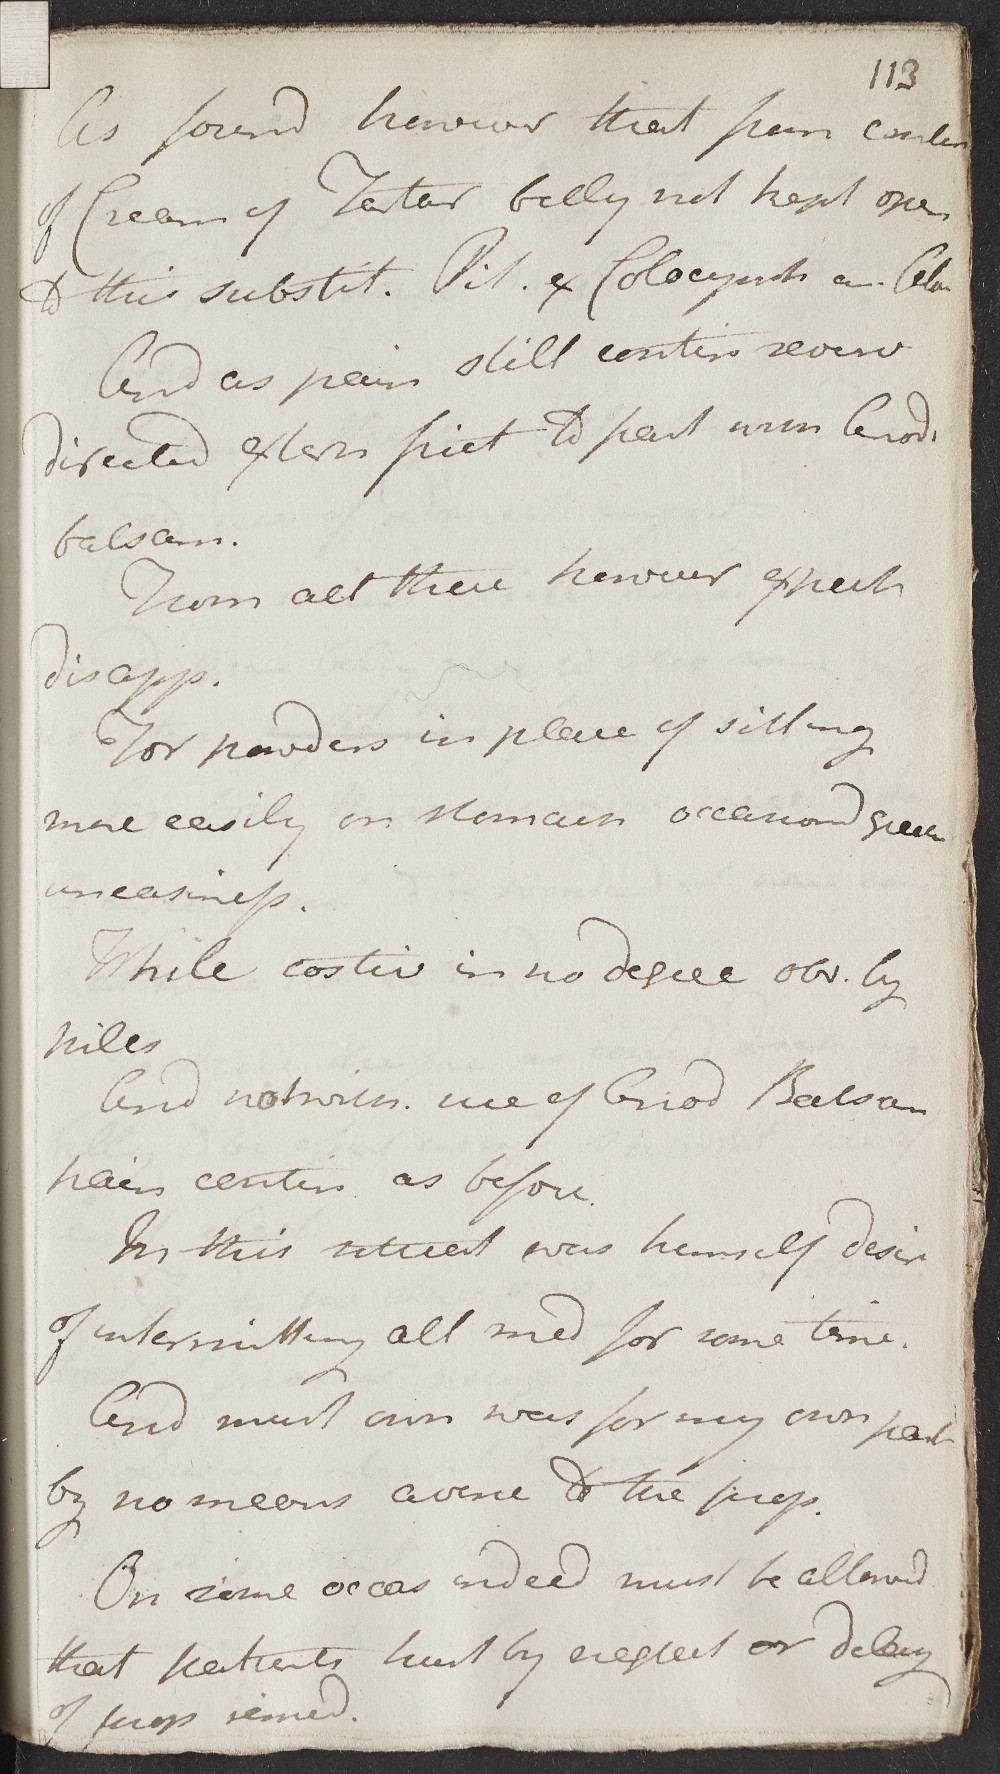 113
As found however that from contin
of Cream of Tartar belly not kept open
to this substit. Pil. ex Colocynth cu. Aloe
And as pain still contin severe
directed extern frict to part with Anod.
balsam.
From all these however effects
disapp.
For powders in place of sitting
more easily on stomach occasiond great
uneasiness.
While costiv in no degree obv. by
piles
And notwith. use of Anod Balsam
pain contin as before.
In this situat was himself desir
of intermitting all med for some time.
And must own was for my own part
by no means averse to the prop.
On some occas indeed must be allowd
that patients hurt by neglect or delay
of prop remed.